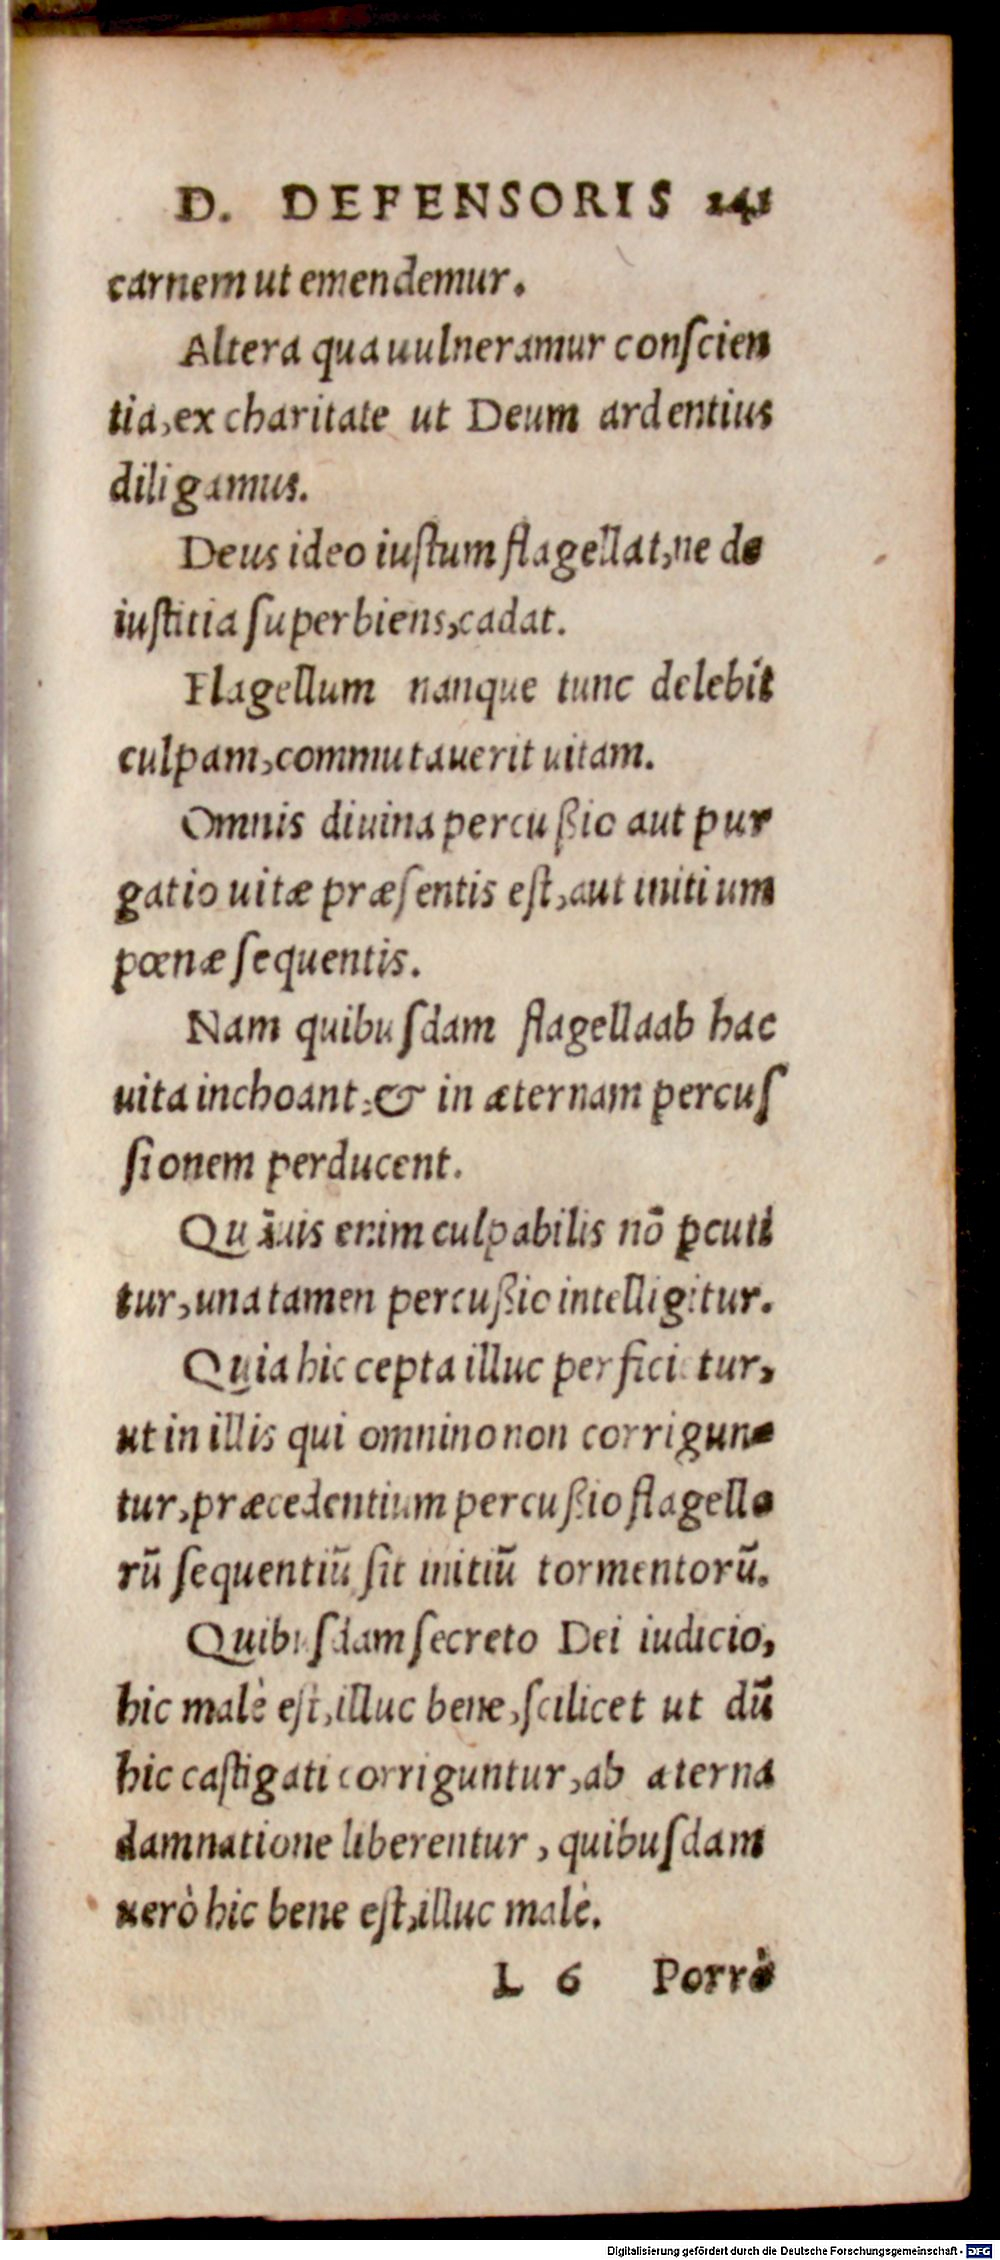 D. DEFENSORIS 241
carnem ut emendemur.
Altera qua uulneramur conſcien
tia, ex charitate ut Deum ardentius
diligamus.
Deus ideo iuſtum flagellat, ne de
iuſtitia ſuperbiens, cadat.
Flagellum nanque tunc delebit
culpam, commutauerit uitam.
Omnis diuina percußio aut pur
gatio uitæ præſentis eſt, aut initium
pœnæ ſequentis.
Nam quibuſdam flagella ab hac
uita inchoant: & in æternam percuſ
ſionem perducent.
Quãuis enim culpabilis nõ ꝑcuti
tur, una tamen percußio intelligitur.
Quia hic cepta illuc perficietur,
ut in illis qui omnino non corrigun-
tur, præcedentium percußio flagello
rũ ſequentiũ ſit initiũ tormentorũ.
Quibuſdam ſecreto Dei iudicio,
hic malè eſt, illuc bene, ſcilicet ut dũ
hic caſtigati corriguntur, ab æterna
damnatione liberentur, quibuſdam
uerò hic bene eſt, illuc malè.
L 6 Porrò
Digitalisierung gefördert durch die Deutsche Forschungsgemeinschaft - DFG